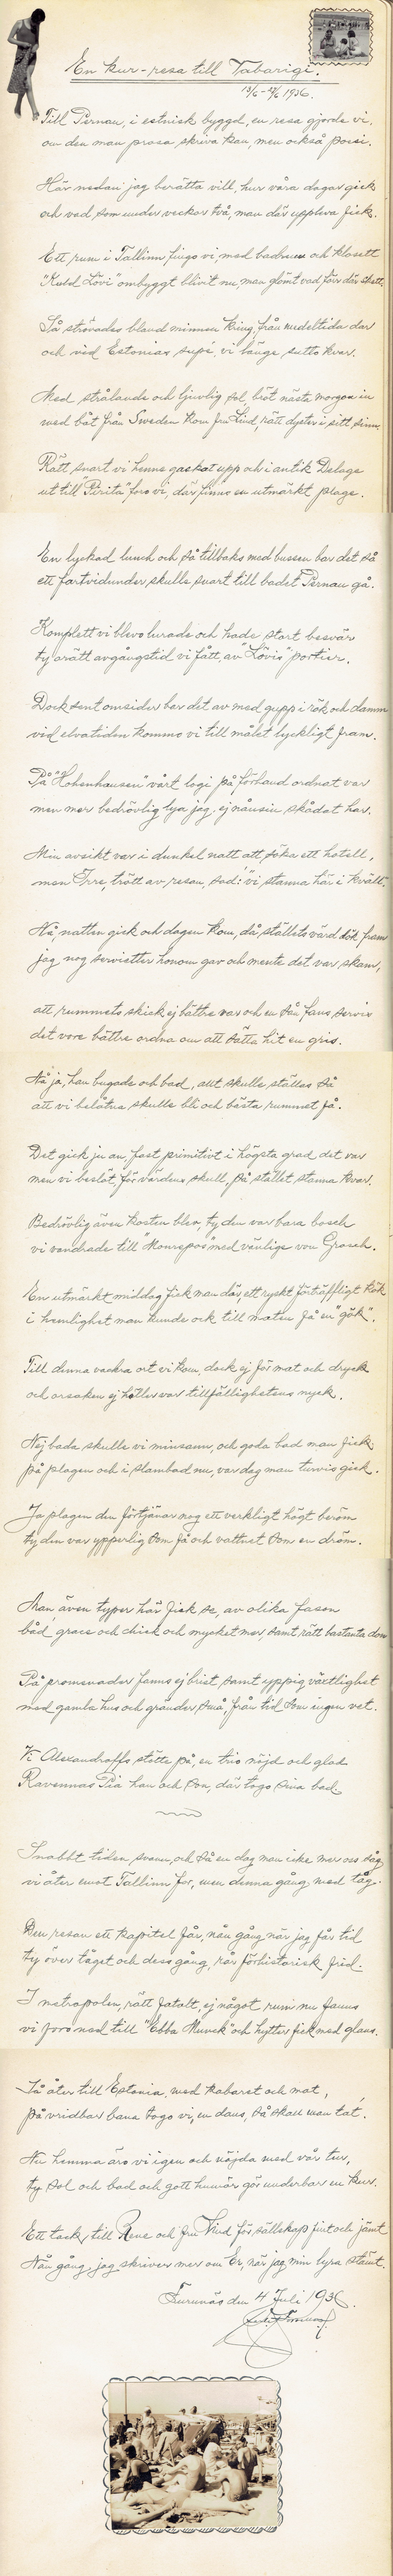 En kur-resa till Tabarigi.
13/6 - 27/6 1936.
Till Pernau, i estnisk byggd, en resa gjorde vi,
om den man prosa skriva kan, men också poesi.
Här nedan jag berätta vill, hur våra dagar gick
och vad som under veckor två, man där uppleva fick.
Ett rum i Tallinn fingo vi, med badrum och klosett
"Kuld Lövi" ombyggt blivit nu, man glömt vad förr där skett.
Så strövades bland minnen kring, från medeltida dar
och vid Estonias supé, vi länge sutto kvar.
Med strålande och ljuvlig sol, bröt nästa morgon in
med båt från Sweden kom fru Lind, rätt dyster i sitt sinn.
Rätt snart vi henne gaskat upp och i antik Delage
ut till "Pirita" foro vi, där finns en utmärkt plage.
En lyckad lunch och så tillbaks med bussen bar det så
ett fartvidunder skulle snart till badet Pernau gå.
Komplett vi blevo lurade och hade stort besvär
ty orätt avgångstid vi fått, av "Lövis" portier.
Dock sent omsider bar det av med gupp i rök och damm
vid elvatiden kommo vi till målet lyckligt fram.
På "Hohenhausen" vårt logi på förhand ordnat var
men mer bedrövlig lya jag, ej nånsin skådat har.
Min avsikt var i dunkel natt att söka ett hotell,
men Irre, trött av resan, sad: "vi stanna här i kväll".
Nå, natten gick och dagen kom, då ställets värd dök fram
jag nog servietter honom gav och mente det var skam,
att rummets skick ej bättre var och en sån fans servis
det vore bättre ordna om att sätta hit en gris.
Nå ja, han bugade och bad, allt skulle ställas så
att vi belåtna skulle bli och bästa rummet få.
Det gick ju an, fast primitivt i högsta grad det var
men vi beslöt, för värdens skull, på stället stanna kvar.
Bedrövlig även kosten blev, ty den var bara bosch
vi vandrade till "Monrepos" med vänlige von Grosch.
En utmärkt middag fick man där, ett ryskt förträffligt kök
i hemlighet man kunde ock till maten få en "gök".
Till denna vackra ort vi kom, dock ej för mat och dryck
och orsaken ej heller var tillfällighetens nyck.
Nej bada skulle vi minsann, och goda bad man fick
på plagen och i slambad nu, var dag man turvis gick.
Ja plagen den förtjänar nog ett verkligt högt beröm
ty den var ypperlig som få och vattnet som en dröm.
Man även typer här fick se, av olika fason
båd' grace och chick och mycket mer, samt rätt bastanta don
På promenader fanns ej brist samt yppig växtlighet
med gamla hus och gränder små, från tid som ingen vet.
Vi Alexandroffs stötte på, en trio nöjd och glad
Ravennas Pia han och son, där togo sina bad.
Snabbt tiden svann, och så en dag man icke mer oss såg
vi åter emot Tallinn for, men denna gång med tåg.
Den resan ett kapitel får, nån gång när jag får tid
ty över tåget och dess gång, rår förhistorisk frid.
I metropolen, rätt fatalt, ej något rum nu fanns
vi foro ned till "Ebba Munck" och hytter fick med glans.
Så åter till Estonia, med kabaret och mat,
på vridbar bana togo vi, en dans, så skall man ta't.
Nu hemma äro vi igen och nöjda med vår tur,
ty sol och bad och gott humör gör underbar en kur.
Ett tack till Rene och fru Lind för sällskap fint och jämt
Nån gång jag skriver mer om Er, när jag min lyra stämt.
Furunäs den 4 Juli 1936.